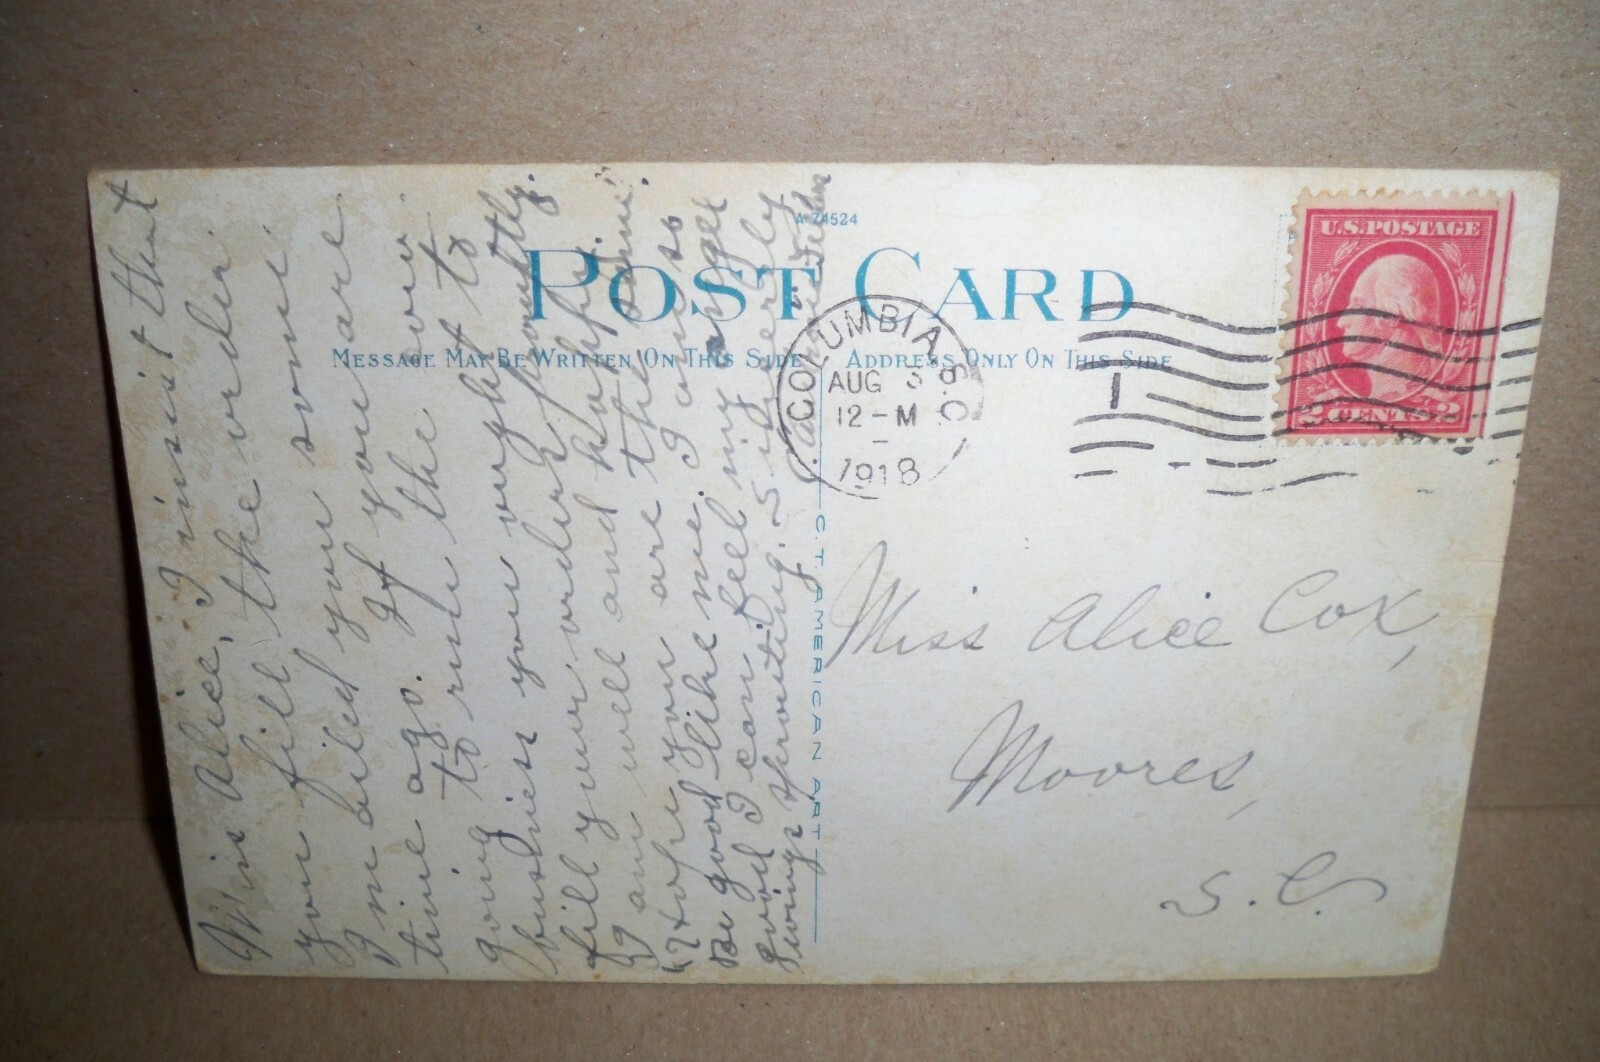 A-74524
POST CARD
MESSAGE MAY BE WRITTEN ON THIS SIDE
ADDRESS ONLY ON THIS SIDE
COLUMBIA S.C.
AUG 3
12-M
1918
1
U.S. POSTAGE
2 CENTS 2
C. T. AMERICAN ART
Miss Alice Cox,
Moores,
S. C.
Miss Alice, I insist that
you fill the order
I mailed you some
time ago. If you are
going to run the
business you ought to
fill your orders promptly.
I am well and happy.
Hope you are the same.
Be good like me. I am so
good I can feel my
wings sprouting. Sincerely